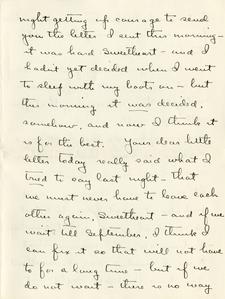 night getting up courage to send
you the letter I sent this morning -
it was hard Sweetheart - and I
hadn't yet decided when I went
to sleep with my boots on - but
this morning it was decided,
somehow, and now I think it
is for the best. Your dear little
letter today really said what I
tried to say last night - that
we must never have to leave each
other again, Sweetheart - and if we
wait till September, I think I
can fix it so that will not have
to for a long time - but if we
do not wait - there is no way